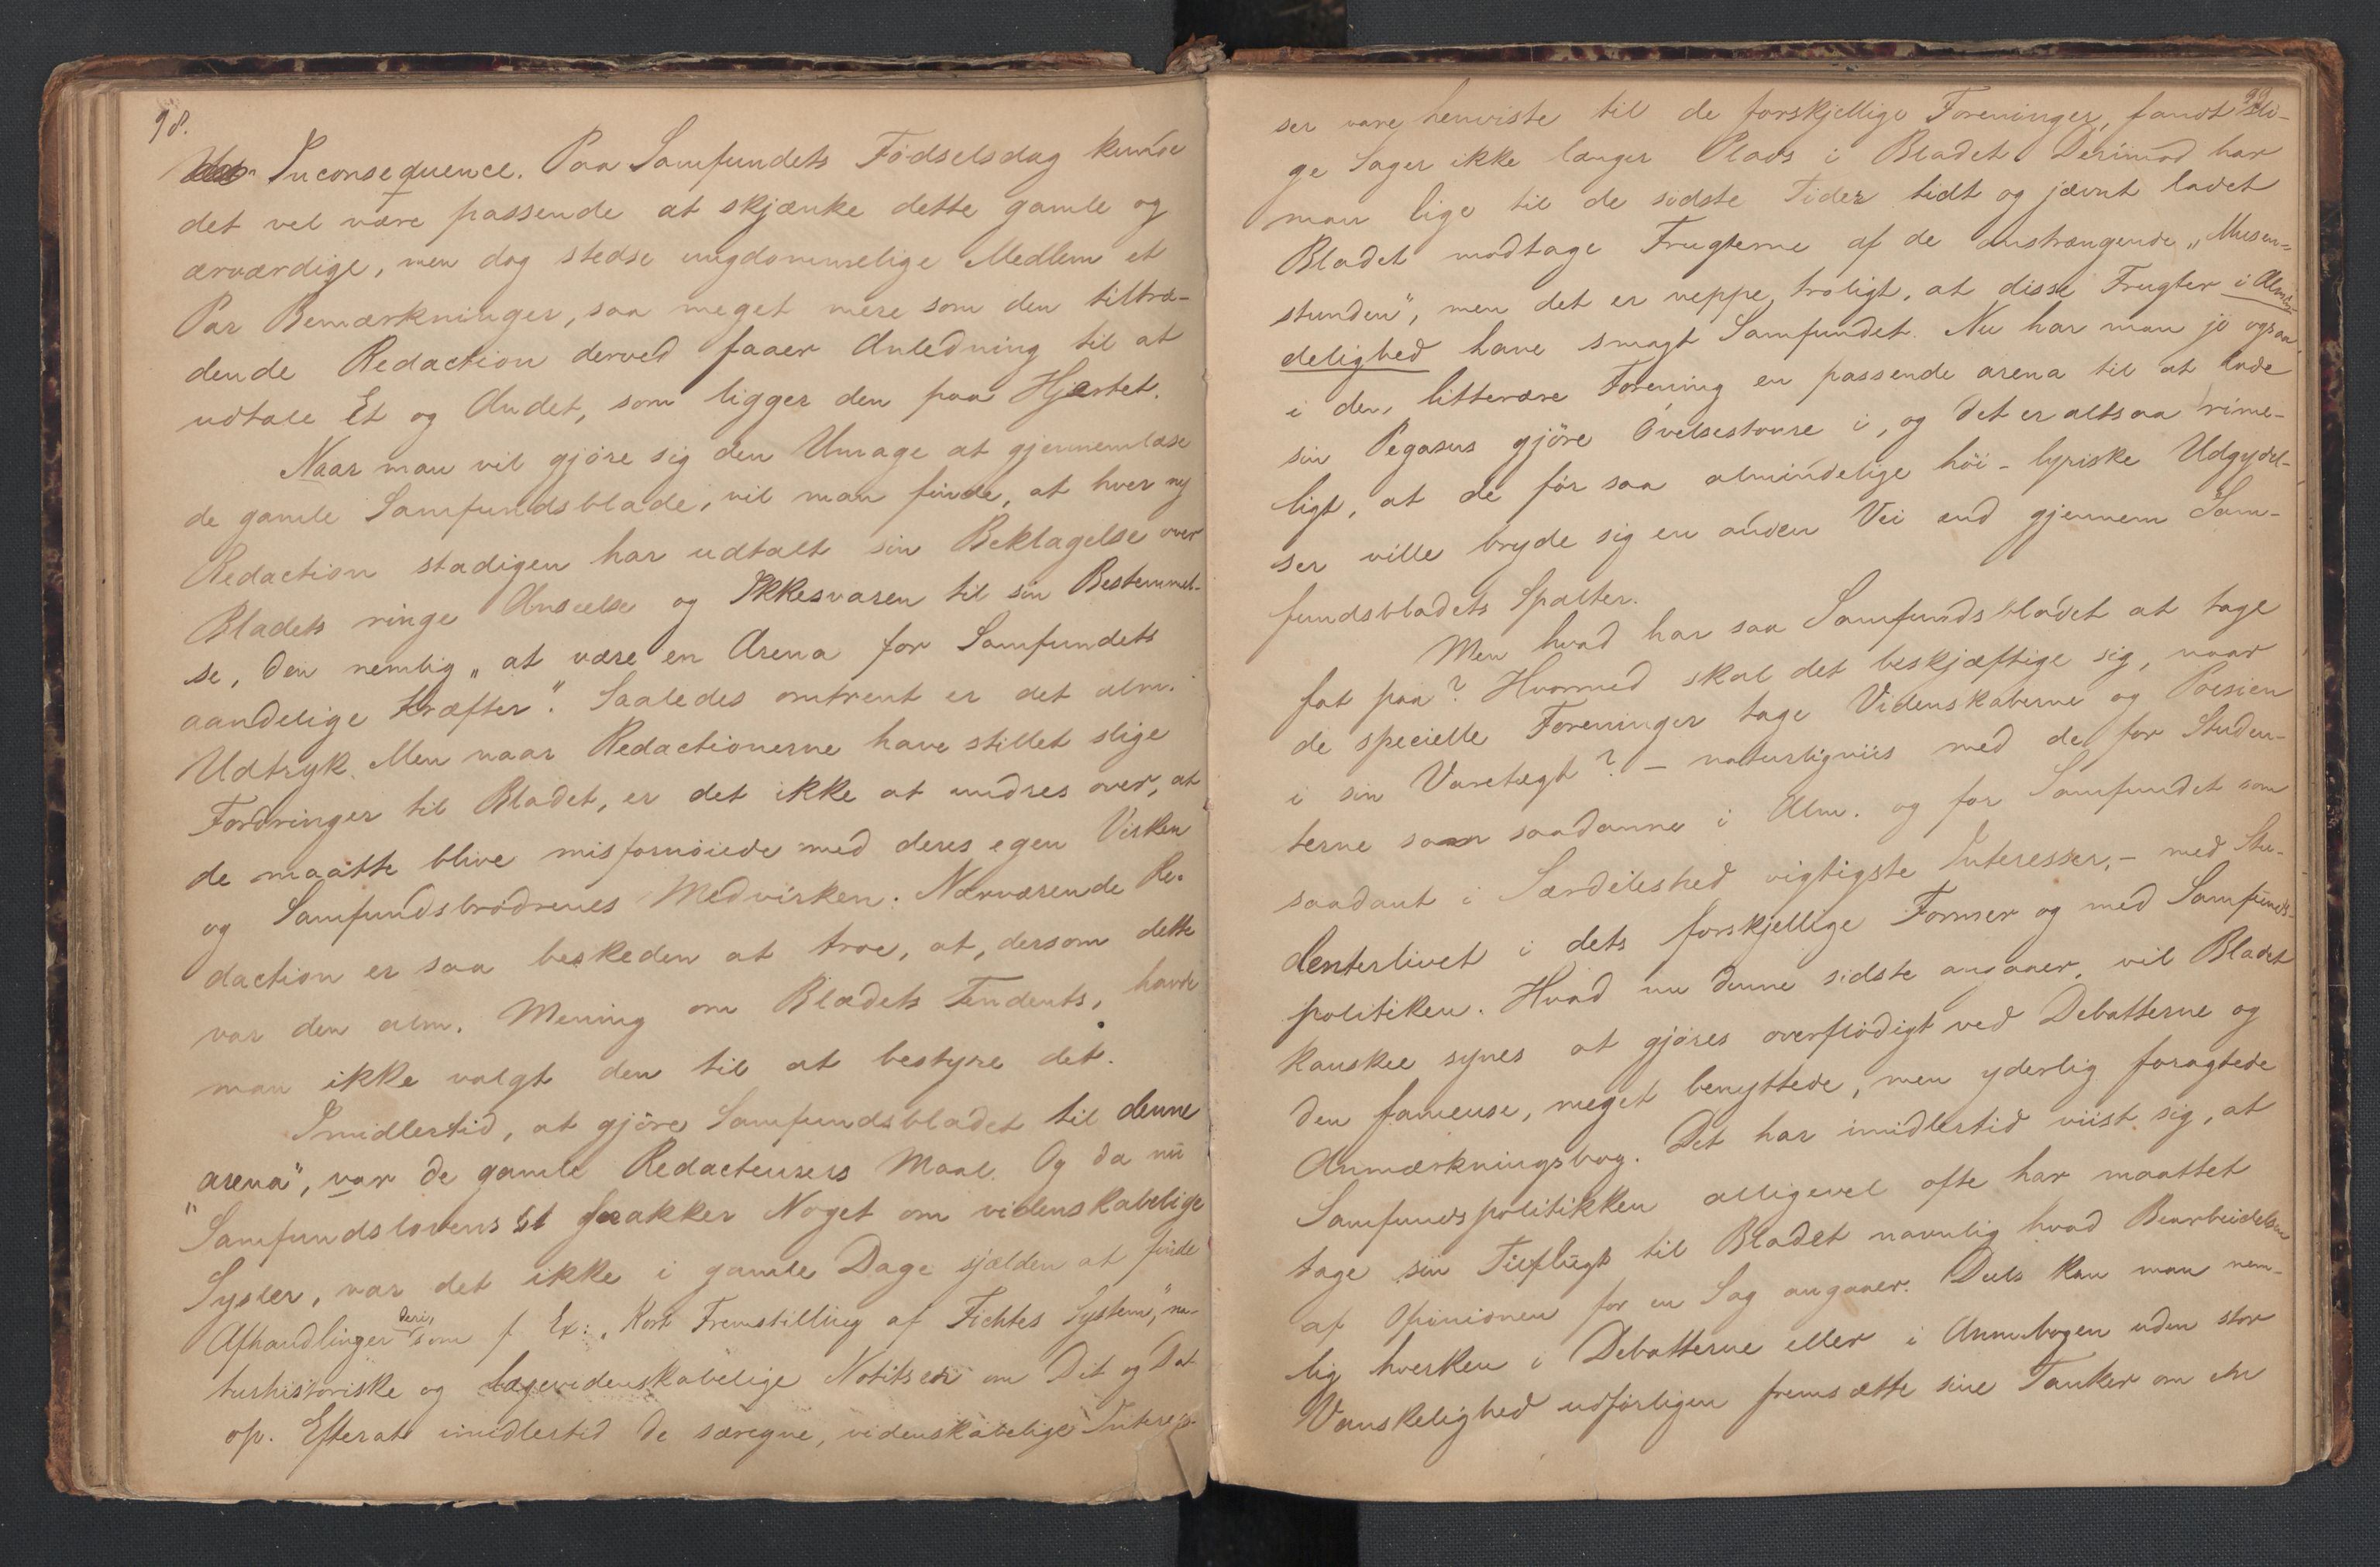 98.
Inconsequence. Paa Samfundets Födselsdag kunde
det vel være passende at skjænke dette gamle og
ærværdige, men dog stedse ungdommelige Medlem et
Par Bemærkninger, saa meget mere som den tiltræ-
dende Redaction derved faaer Anledning til at
udtale Et og Andet, som ligger den paa Hjertet.
Naar man vil gjöre sig den Umage at gjennemlæse
de gamle Samfundsblade, vil man finde, at hver ny
Redaction stadigen har udtalt sin Beklagelse over
Bladets ringe Anseelse og Ikkesvaren til sin Bestemmel-
se, den nemlig „at være en Arena for Samfundets
aandelige Kræfter“. Saaledes omtrent er det alm.
Udtryk. Men naar Redactionerne have stillet slige
Fordringer til Bladet, er det ikke at undres over, at
de maatte blive misfornöiede med deres egen Virken
og Samfundsbrödrenes Medvirken. Nærværende Re-
daction er saa beskeden at troe, at, dersom dette
var den alm. Mening om Bladets Tendents, havde
man ikke valgt den til at bestyre det.
Imidlertid, at gjöre Samfundsbladet til denne
"arena", var de gamle Redacteurers Maal. Og da nu
Samfundslovens § 1 snakker Noget om videnskabelige
Sysler, var det ikke i gamle Dage sjælden at finde
Afhandlinger deri, som f. Ex: „Kort Fremstilling af Fichtes System,“ na-
turhistoriske og lægevidenskabelige Notitser om Dit og Dat
op. Efterat imidlertid de særegne, videnskabelige Interes-
99
ser vare henviste til de forskjellige Foreninger, fandt sli-
ge Sager ikke længer Plads i Bladet. Derimod har
man lige til de sidste Tider tidt og jævnt ladet
Bladet modtage Frugterne af de anstrængende „Musen-
stunden“, men det er neppe troligt, at disse Frugter i Almin-
delighed have smagt Samfundet. Nu har man jo ogsaa
i den litterære Forening en passende arena til at lade
sin Pegasus gjöre Övelsestoure i, og det er altsaa rime-
ligt, at de för saa almindelige höi-lyriske Udgydel-
ser ville bryde sig en anden Vei end gjennem Sam-
fundsbladets Spalter.
Men hvad har saa Samfundsbladet at tage
fat paa? Hvormed skal det beskjæftige sig, naar
de specielle Foreninger tage Videnskaberne og Poesien
i sin Varetægt? – naturligviis med de for Studen-
terne som saadanne i Alm. og for Samfundet som
saadant i Særdeleshed vigtigste Interesser, – med Stu-
denterlivet i dets forskjellige Former og med Samfunds-
politiken. Hvad nu denne sidste angaaer, vil Bladet
kanskee synes at gjöres overflödigt ved Debatterne og
den fameuse, meget benyttede, men yderlig foragtede
Anmærkningsbog. Det har imidlertid viist sig, at
Samfundspolitikken alligevel ofte har maattet
tage sin Tilflugt til Bladet navnlig hvad Bearbeidelsen
af Opinionen for en Sag angaaer. Deels kan man nem-
lig hverken i Debatterne eller i Anmbogen uden stor
Vanskelighed udförligen fremsætte sine Tanker om en